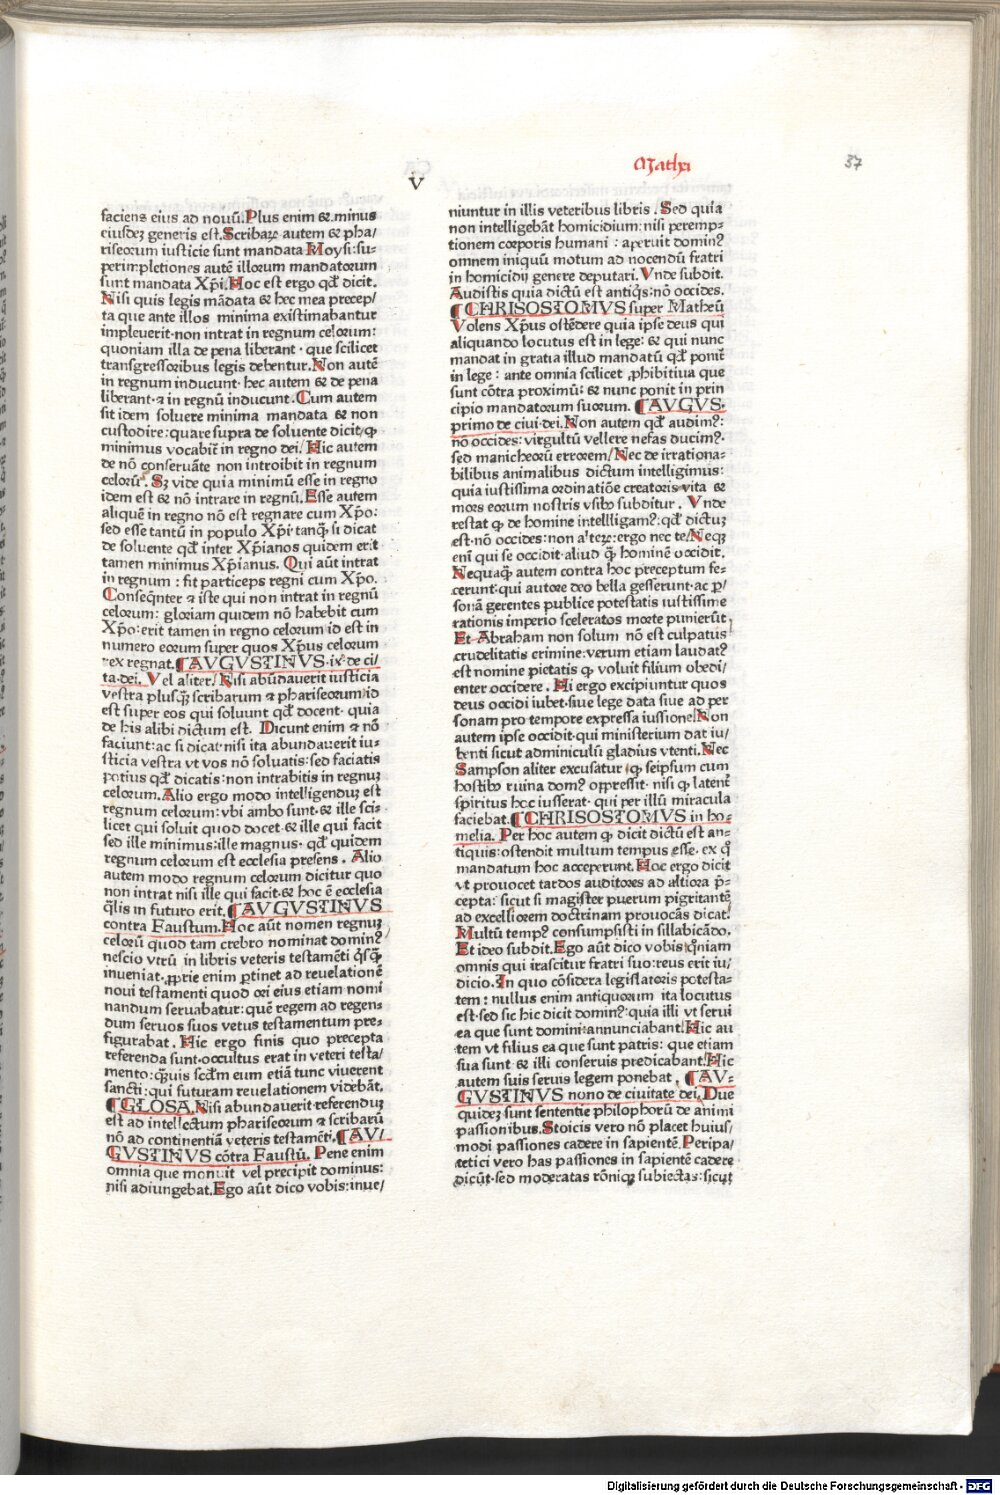 Mathei
37
V
faciens eius ad nouū. Plus enim & minus
eiusdeʒ generis est. Scribaꝝ autem & pha/
riseorum iusticie sunt mandata Moysi: su-
perimpletiones autē illorum mandatorum
sunt mandata Xp̄i. Hoc est ergo qd̄ dicit.
Nisi quis legis mādata & hec mea precep/
ta que ante illos minima existimabantur
impleuerit·non intrat in regnum celorum:
quoniam illa de pena liberant · que scilicet
transgressoribus legis debentur. Non autē
in regnum inducunt· hec autem & de pena
liberant·⁊ in regnū inducunt. Cum autem
sit idem soluere minima mandata & non
custodire: quare supra de soluente dicit/ ꝙ
minimus vocabit̄ in regno dei. Hic autem
de nō conseruāte non introibit in regnum
celorū. Sʒ vide quia minimū esse in regno
idem est & nō intrare in regnū. Esse autem
aliquē in regno nō est regnare cum Xp̄o:
sed esse tantū in populo Xp̄i· tanq̄ si dicat
de soluente qd̄ inter Xp̄ianos quidem erit
tamen minimus Xp̄ianus. Qui aūt intrat
in regnum : fit particeps regni cum Xp̄o.
Conseqn̄ter ⁊ iste qui non intrat in regnū
celorum: gloriam quidem nō habebit cum
Xp̄o: erit tamen in regno celorum id est in
numero eorum super quos Xp̄us celorum
rex regnat. ¶AVGVSTINVS·ix·de ci/
ta·dei. Vel aliter. Nisi abūdauerit iusticia
vestra plusq̄ʒ scribarum ⁊ phariseorum id
est super eos qui soluunt qd̄ docent· quia
de his alibi dictum est. Dicunt enim ⁊ nō
faciunt: ac si dicat· nisi ita abundauerit iu-
sticia vestra vt vos nō soluatis: sed faciatis
potius qd̄ dicatis: non intrabitis in regnuʒ
celorum. Alio ergo modo intelligenduʒ est
regnum celorum: vbi ambo sunt· & ille sci-
licet qui soluit quod docet· & ille qui facit
sed ille minimus: ille magnus· qd̄ quidem
regnum celorum est ecclesia presens . Alio
autem modo regnum celorum dicitur quo
non intrat nisi ille qui facit· & hoc ē ecclesia
q̄lis in futuro erit. ¶AVGVSTINVS
contra Faustum. Hoc aūt nomen regnuʒ
celorū quod tam crebro nominat domin⁹
nescio vtrū in libris veteris testamēti q̄sq̄ʒ
inueniat· ꝓprie enim ꝑtinet ad reuelationē
noui testamenti quod ori eius etiam nomi
nandum seruabatur: quē regem ad regen-
dum seruos suos vetus testamentum pre-
figurabat . Hic ergo finis quo precepta
referenda sunt· occultus erat in veteri testa/
mento: q̄ʒuis scd̄m eum etiā tunc viuerent
sancti: qui futuram reuelationem videbāt.
¶GLOSA. Nisi abundauerit· referenduʒ
est ad intellectum phariseorum ⁊ scribarū
nō ad continentiā veteris testamēti. ¶AV/
GVSTINVS cōtra Faustū. Pene enim
omnia que monuit vel precipit dominus:
nisi adiungebat. Ego aūt dico vobis: inue/
niuntur in illis veteribus libris . Sed quia
non intelligebāt homicidium: nisi peremp-
tionem corporis humani : aperuit domin⁹
omnem iniquū motum ad nocendū fratri
in homicidij genere deputari. Vnde subdit.
Audistis quia dictū est antiq̄s: nō occides.
¶CHRISOSTOMVS super Matheū
Volens Xp̄us ostēdere quia ipse deus qui
aliquando locutus est in lege: & qui nunc
mandat in gratia illud mandatū qd̄ ponit̄
in lege : ante omnia scilicet ꝓhibitiua que
sunt cōtra proximū: & nunc ponit in prin
cipio mandatorum suorum. ¶AVGVS·
primo de ciui·dei. Non autem qd̄ audim⁹:
nō occides: virgultū vellere nefas ducim⁹·
sed manicheorū errorem/ Nec de irrationa-
bilibus animalibus dictum intelligimus:
quia iustissima ordinatiōe creatoris vita &
mors eorum nostris vsibꝰ subditur . Vnde
restat ꝙ de homine intelligam⁹: qd̄ dictuʒ
est·nō occides: non alteꝝ: ergo nec te/ Neqʒ
eni qui se occidit· aliud q̄ hominē occidit.
Nequaq̄ autem contra hoc preceptum fe-
cerunt: qui autore deo bella gesserunt· ac ꝑ/
sonā gerentes publice potestatis iustissime
rationis imperio sceleratos morte punierūt
Et Abraham non solum nō est culpatus
crudelitatis crimine: verum etiam laudat⁹
est nomine pietatis ꝙ voluit filium obedi/
enter occidere . Hi ergo excipiuntur quos
deus occidi iubet· siue lege data siue ad per
sonam pro tempore expressa iussione/ Non
autem ipse occidit· qui ministerium dat iu/
benti sicut adminiculū gladius vtenti. Nec
Sampson aliter excusatur · ꝙ seipsum cum
hostibꝰ ruina dom⁹ oppressit· nisi ꝙ latent̄
spiritus hoc iusserat· qui per illū miracula
faciebat. ¶CHRISOSTOMVS in ho-
melia. Per hoc autem ꝙ dicit dictū est an-
tiquis: ostendit multum tempus esse· ex q̊
mandatum hoc acceperunt. Hoc ergo dicit
vt prouocet tardos auditores ad altiora p̄-
cepta: sicut si magister puerum pigritantē
ad excelsiorem doctrinam prouocās dicat.
Multū temp⁹ consumpsisti in sillabicādo.
Et ideo subdit. Ego aūt dico vobis q̊niam
omnis qui irascitur fratri suo: reus erit iu/
dicio. In quo cōsidera legislatoris potesta-
tem : nullus enim antiquorum ita locutus
est· sed sic hic dicit domin⁹: quia illi vt serui
ea que sunt domini annunciabant. Hic au
tem vt filius ea que sunt patris: que etiam
sua sunt & illi conseruis predicabant. Hic
autem suis seruis legem ponebat . ¶AV-
GVSTINVS nono de ciuitate dei. Due
quidez sunt sententie philophorū de animi
passionibus. Stoicis vero nō placet huius/
modi passiones cadere in sapientē. Peripa/
tetici vero has passiones in sapientē cadere
dicūt· sed moderatas rōniqʒ subiectas: sicuʒ
Digitalisierung gefördert durch die Deutsche Forschungsgemeinschaft - DFG